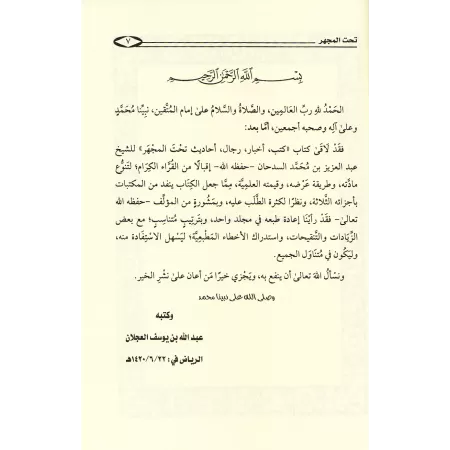 تحت المجهر
٧
بسم الله الرحمن الرحيم
الحَمْدُ للهِ ربِّ العَالَمِين، والصَّلاةُ والسَّلامُ علىٰ إمام المُتَّقين، نبِيِّنا مُحَمَّدٍ
وعلىٰ آلِه وصحبه أجمعين، أمَّا بعد:
فقَدْ لَاقَىٰ كتاب «كتب، أخبار، رجال، أحاديث تحْتَ المِجْهَر» للشيخ
عبد العزيز بن مُحَمَّد السدحان -حفظه الله- إقبالًا من القُرَّاء الكِرَام؛ لتَنوُّع
مادَّته، وطريقة عَرْضه، وقيمته العلميَّة، مِمَّا جعل الكِتَاب ينفد من المكتبات
بأجزائه الثَّلاثة، ونظرًا لكثرة الطَّلَب عليه، وبمَشُورةٍ من المؤلِّف -حفظه الله
تعالىٰ- فقَدْ رأيْنا إعادة طبعه في مجلد واحد، وبتَرتِيبٍ مُتناسِبٍ؛ مع بعض
الزِّيَادات والتَّنقيحات، واستدراك الأخطاء المَطْبعيَّة؛ ليَسْهل الاسْتِفَادة منه،
وليَكُون في مُتَنَاوَل الجميع.
ونسألُ اللهَ تعالىٰ أن ينفع به، ويَجْزي خيرًا مَن أعان علىٰ نشْرِ الخير.
وصلى الله على نبينا محمد
وكتبه
عبد الله بن يوسف العجلان
الرياض في: ١٤٢٠/٦/٢٢هـ